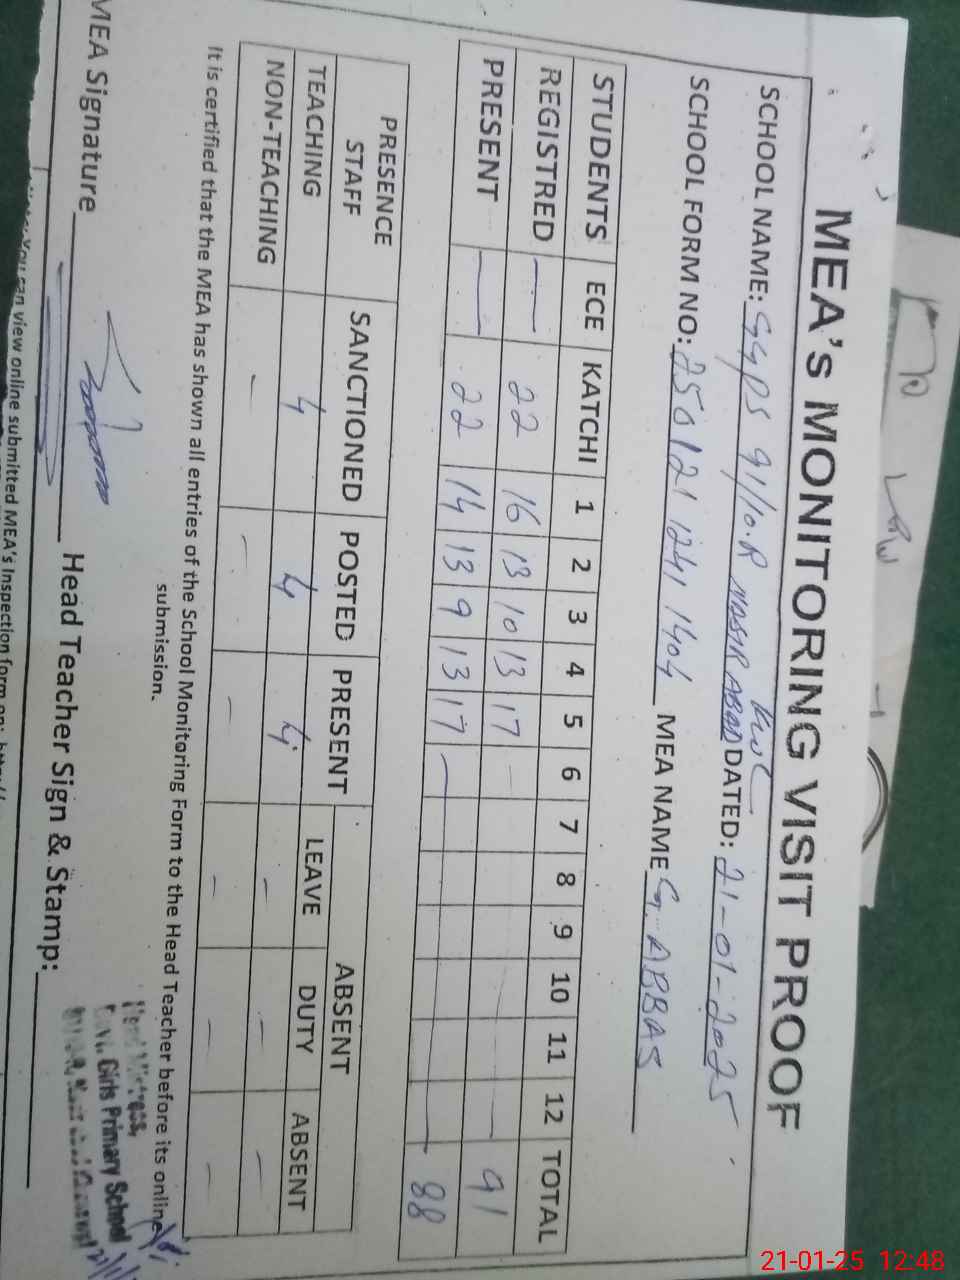 MEA'S MONITORING VISIT PROOF
SCHOOL NAME: GGPS 91/10.R NASIR ABAD KWL DATED: 21-01-2025
SCHOOL FORM NO: 250121 1241 1404 MEA NAME G. ABBAS
STUDENTS ECE KATCHI 1 2 3 4 5 6 7 8 9 10 11 12 TOTAL
REGISTRED — 22 16 13 10 13 17 — 91
PRESENT — 22 14 13 9 13 17 — 88
PRESENCE STAFF SANCTIONED POSTED PRESENT ABSENT
LEAVE DUTY ABSENT
TEACHING 4 4 4 — — —
NON-TEACHING — — — — — —
It is certified that the MEA has shown all entries of the School Monitoring Form to the Head Teacher before its online
submission.
MEA Signature Head Teacher Sign & Stamp:
Head Mistress,
Govt. Girls Primary School
You can view online submitted MEA's Inspection form on:
21-01-25 12:48